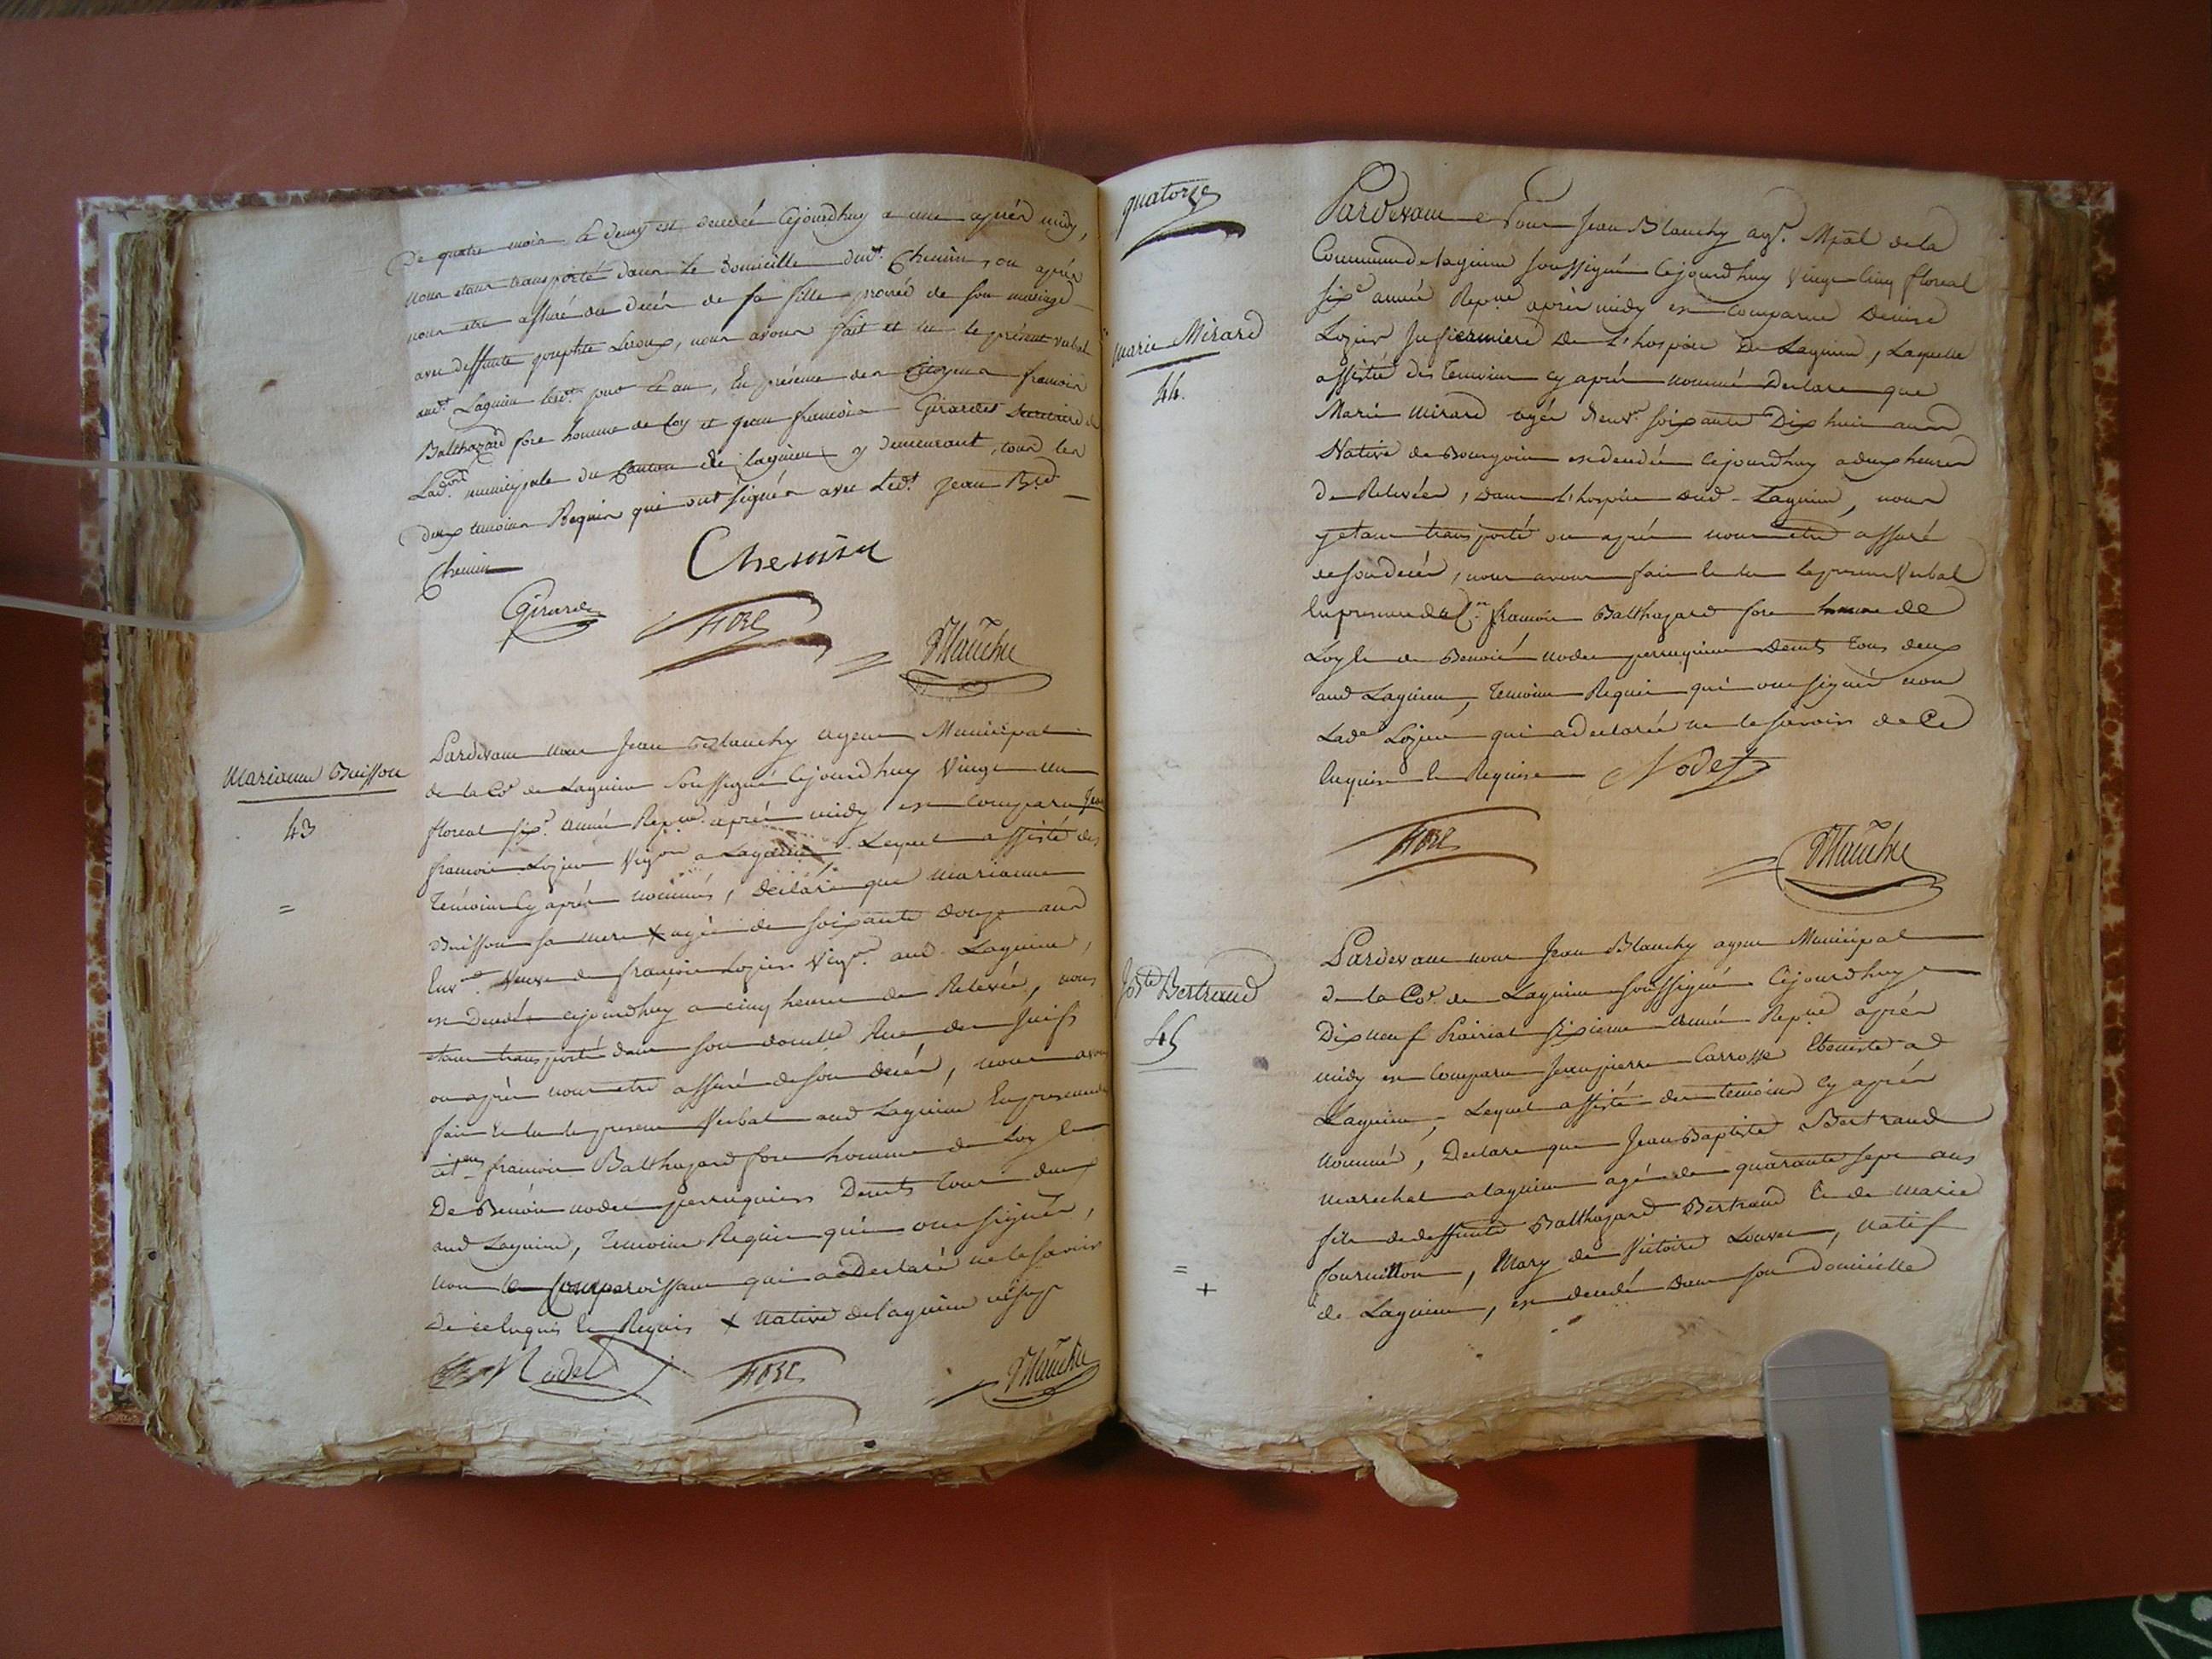 De quatre mois & demy est décedée cejourdhuy a une après midy,
nous etant transporté dans le domicille dud.t Chemin, ou après
nous etre assuré du decès de sa fille procréé de son mariage
avec deffunte josephte Leroux, nous avons fait et lu le présent verbal
aud.t Lagnieu lesd.t jour & an, En présence des Citoyens francois
Balthazard fore homme de loy et jean francois Girardet secretaire de
Lad.on municipale du Canton de lagnieu y demeurant, tous les
deux temoins Requis qui ont signés avec led.t jean B.te
Chemin
Chemin
Girardet
FORE
Blanchy
Mariane Buisson
43
=
Pardevant nous Jean Blanchy agent Municipal
de la Co.e de Lagnieu soussigné Cejourdhuy vingt un
floreal six.e année Rep.ne après midy est comparu Jean
francois Lozier Vig.on a Lagnieu Lequel assisté des
Temoins Cy après nommés, déclare que mariane
Buisson sa mere X agée de soixante douze ans
Env.n Veuve de françois Lozier Vig.on aud. Lagnieu,
est Decedée cejourdhuy a cinq heures de Relevée, nous
etant transporté dans son domille Rue des Juifs
ou après nous etre assuré de son decés, nous avons
fait & lu le present Verbal aud Lagnieu En presence des
cit.ens francois Balthazard fore homme de Loy &
De Benoit nodet perruquier Demts tous deux
aud Lagnieu, Temoins Requis qui ont signés,
non le Comparoissant qui a Declaré ne le savoir
De ce Enquis & Requis X native de lagnieu
Nodet FORE Blanchy
quatorze
marie Mirard
44.
Pardevant Nous Jean Blanchy ag.t Mpal de la
Commune de lagnieu soussigné Cejourdhuy Vingt Cinq floreal
six.e année Rep.ne après midy est comparue Denise
Lozier Infiermiere De L'hospice De Lagnieu, Laquelle
assistée des Temoins cy après nommé Declare que
Marie Mirard agée d'env.n soixante Dix huit ans
Native de Bourgoin est decedée cejourdhuy a deux heures
de Relevées, dans L'hospice dud Lagnieu, nous
y etant transporté ou après nous etre assuré
de son decés, nous avons fait & lu le present Verbal
En presence des C.ens francois Balthazard fore homme de
Loy & de Benoit nodet perruquier Demts tous deux
aud Lagnieu, Temoins Requis qui ont signé non
Lad.e Lozier qui a declarée ne le savoir de Ce
Enquise & Requise Nodet
FORE
Blanchy
J B.te Bertrand
45
=
+
Pardevant nous Jean Blanchy agent Municipal
de la Co.e de Lagnieu soussigné Cejourdhuy
Dix neuf Prairial sixieme année Rep.ne après
midy est Comparu Jean pierre Carrosse Ebeniste a
Lagnieu, Lequel assisté des temoins Cy après
nommé, Declare que Jean Baptiste Bertrand
marechal a lagnieu agé de quarante sept ans
fils de deffunts Balthazard Bertrand & de Marie
fournillon, Mary de Victoire Louvet, natif
de Lagnieu, est decedé dans son domicille